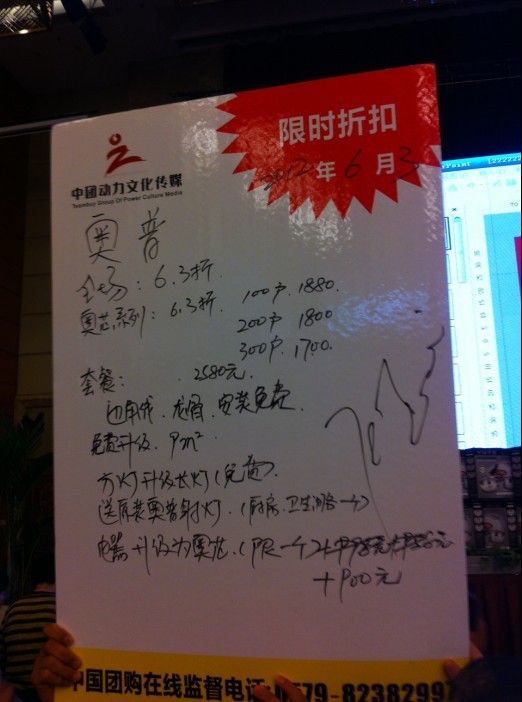 限时折扣
2012年6月3
中团动力文化传媒
Teambuy Group Of Power Culture Media
奥普
全场：6.3折.
奥芯系列：6.3折. 100户.1880.
200户.1800
300户.1700.
套餐： 2580元.
边角线.龙骨.安装免费
免费升级.9m²
方灯升级长灯(免费).
送原装奥普射灯.(厨房.卫生间各一个)
电器升级为奥芯.(限一个)
+900元
中国团购在线监督电话:0579-82382997